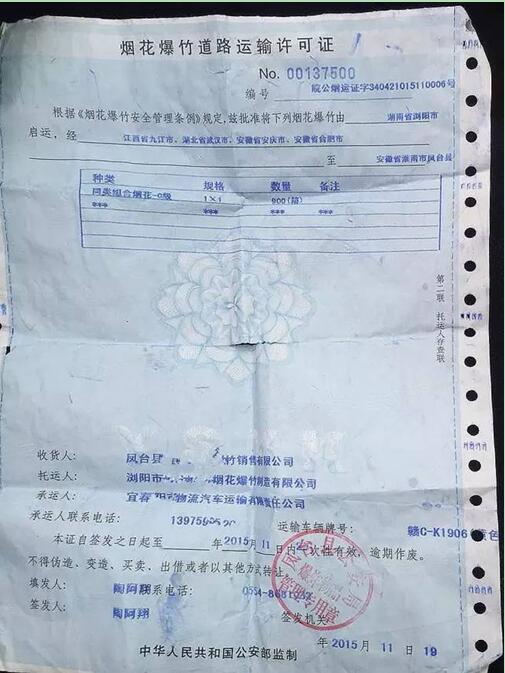 烟花爆竹道路运输许可证
No. 00137500
编号 皖公烟运证字340421015110006号
根据《烟花爆竹安全管理条例》规定,兹批准将下列烟花爆竹由 湖南省浏阳市
启运,经 江西省九江市、湖北省武汉市、安徽省安庆市、安徽省合肥市
至 安徽省淮南市凤台县
种类 规格 数量 备注
同类组合烟花-C级 1×1 900(箱)
*** *** *** ***
第二联 托运人存查联
收货人: 凤台县 竹销售有限公司
托运人: 浏阳市 烟花爆竹制造有限公司
承运人: 宜春 物流汽车运输有限责任公司
承运人联系电话: 运输车辆牌号: 赣C-K1906
本证自签发之日起至 年2015月11日内 次性有效,逾期作废。
不得伪造、变造、买卖、出借或者以其他方式转让。
填发人: 陶阿翔 联系电话: 0554-8681
签发人: 陶阿翔 签发机关
年2015月 11 日 19
中华人民共和国公安部监制